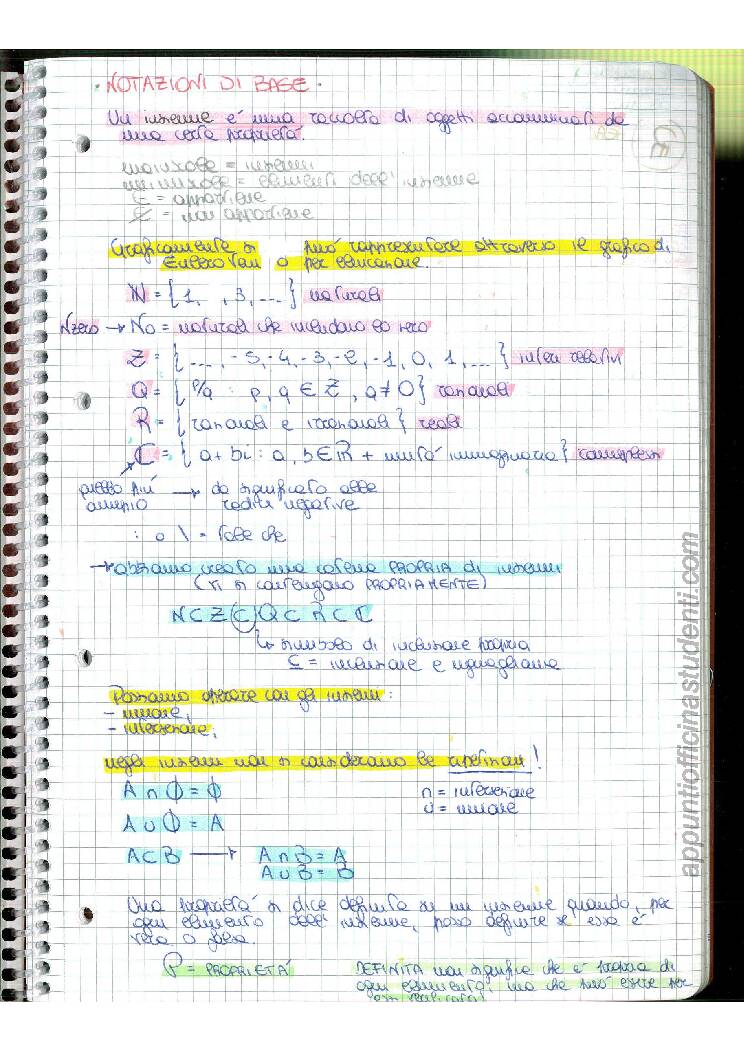 · NOTAZIONI DI BASE ·
Un insieme è una raccolta di oggetti accomunati da
una certa proprietà.
maiuscole = insiemi
minuscole = elementi dell'insieme
∈ = appartiene
∉ = non appartiene
Graficamente si può rappresentare attraverso il grafico di
Eulero Ven o per elencazione.
N = {1, , 3, ....} naturali
N zero → No = naturali che includano lo zero
Z = {...., -5, -4, -3, -2, -1, 0, 1, ...} interi relativi
Q = {p/q : p, q ∈ Z, q ≠ 0} razionali
R = {razionali e irrazionali} reali
C = {a + bi : a, b ∈ R + unità immaginaria} complessi
quello più → da significato alle
ampio radici negative
: o \ = tale che
→ abbiamo creato una catena PROPRIA di insiemi
(si contengano PROPRIAMENTE)
N ⊂ Z ⊂ Q ⊂ R ⊂ C
↳ simbolo di inclusione propria
⊆ = inclusione e uguaglianza
Possiamo operare con gli insiemi :
- unione,
- intersezione,
negli insiemi non si considerano le ripetizioni !
A ∩ ∅ = ∅
∩ = intersezione
∪ = unione
A ∪ ∅ = A
A ⊂ B → A ∩ B = A
A ∪ B = B
Una proprietà si dice definita su un insieme quando, per
ogni elemento dell'insieme, posso definire se essa è
vera o falsa.
P = PROPRIETÀ
DEFINITA non significa che è propria di
ogni elemento, ma che può essere per
appuntiofficinastudenti.com